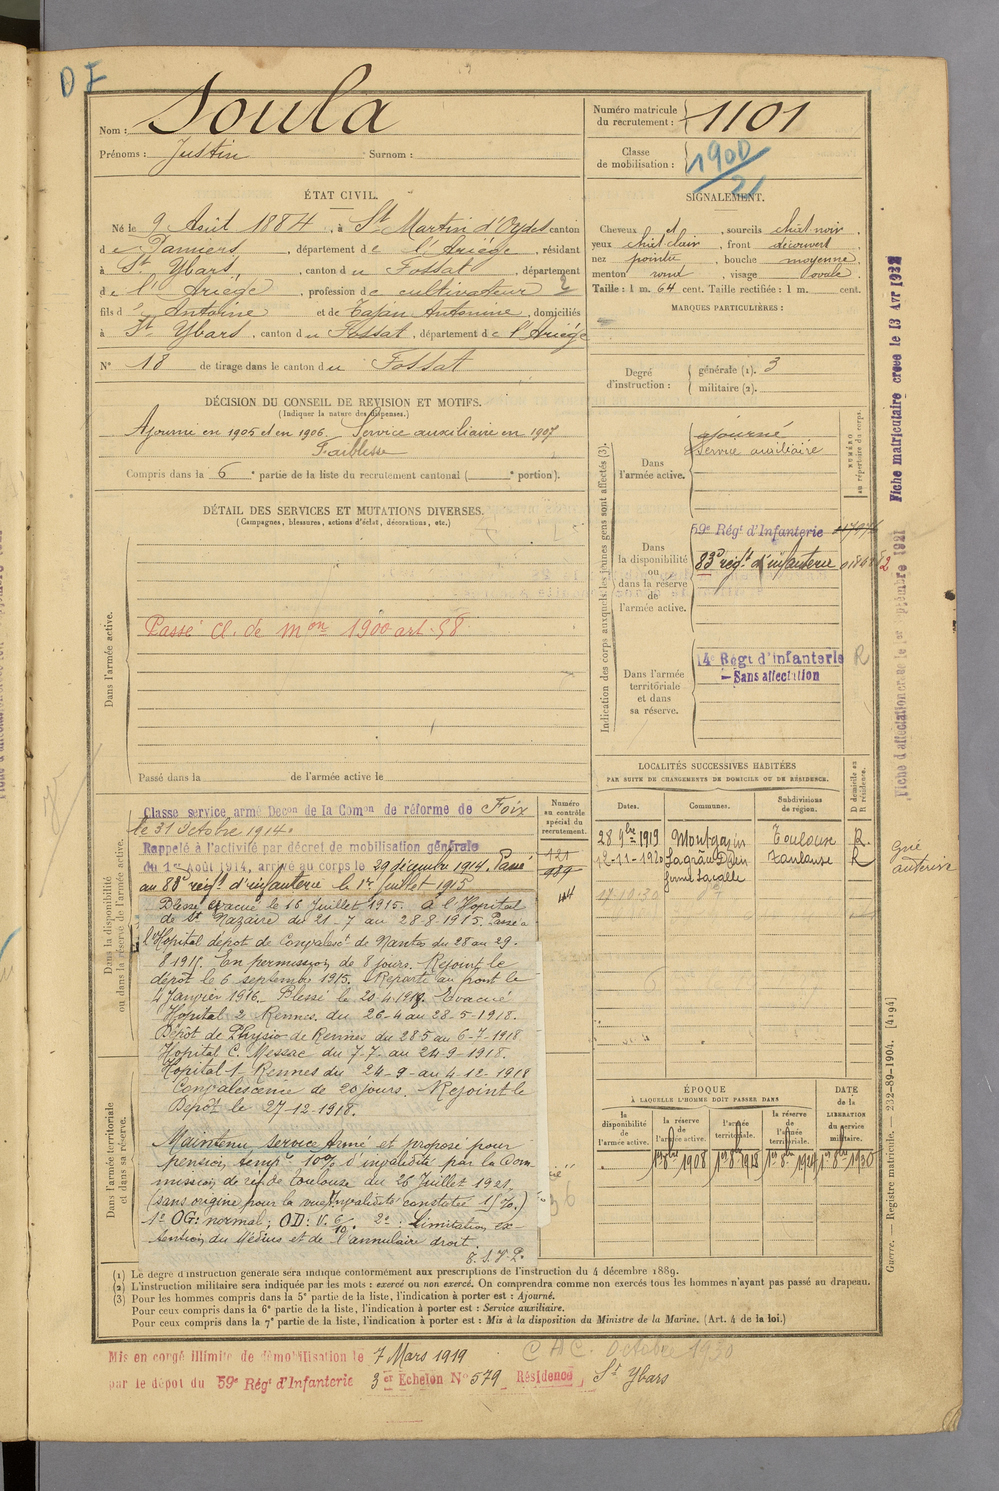 DF
Nom : Soula
Prénoms : Justin Surnom :
Numéro matricule du recrutement : 1101
Classe de mobilisation : 1900/21
ÉTAT CIVIL.
Né le 9 Août 1884, à St Martin d'Oydes canton
de Pamiers, département de l'Ariège, résidant
à St Ybars, canton du Fossat, département
de l'Ariège, profession de cultivateur
fils d' Antoine et de Tajan Antonine, domiciliés
à St Ybars, canton du Fossat, département de l'Ariège
N° 18 de tirage dans le canton du Fossat
SIGNALEMENT.
Cheveux et, sourcils chât noir,
yeux chât clair, front découvert,
nez pointu, bouche moyenne,
menton rond, visage ovale.
Taille : 1 m. 64 cent. Taille rectifiée : 1 m. cent.
MARQUES PARTICULIÈRES :
Degré d'instruction : générale (1). 3
militaire (2).
DÉCISION DU CONSEIL DE REVISION ET MOTIFS.
(Indiquer la nature des dispenses.)
Ajourné en 1905 et en 1906. Service auxiliaire en 1907
Faiblesse
Compris dans la 6e partie de la liste du recrutement cantonal ( e portion).
DÉTAIL DES SERVICES ET MUTATIONS DIVERSES.
(Campagnes, blessures, actions d'éclat, décorations, etc.)
Dans l'armée active.
Passé cl. de mon 1900 art. 58
Passé dans la de l'armée active le
Indication des corps auxquels les jeunes gens sont affectés (3).
NUMÉRO au répertoire du corps.
Dans l'armée active.
ajourné
Service auxiliaire
Dans la disponibilité ou dans la réserve de l'armée active.
59e Régt d'Infanterie
83e régt d'infanterie
Dans l'armée territoriale et dans sa réserve.
14e Régt d'infanterie R
– Sans affectation
Fiche matriculaire créée le 13 Avr 1932
Fiche d'affectation créée le 1er Septembre 1921
LOCALITÉS SUCCESSIVES HABITÉES
PAR SUITE DE CHANGEMENTS DE DOMICILE OU DE RÉSIDENCE.
Dates. Communes. Subdivisions de région. D domicile ou R résidence.
28 9bre 1919 Montgazin Toulouse R
12-11-1920 Lagrâce Dieu Toulouse R
ferme Lacalle
17-10-30
Dans la disponibilité ou dans la réserve de l'armée active.
Numéro au contrôle spécial du recrutement.
121
989
144
Classé service armé Décon de la Comon de réforme de Foix
le 31 Octobre 1914.
Rappelé à l'activité par décret de mobilisation générale
du 1er Août 1914, arrivé au corps le 29 décembre 1914. Passé
au 83e régt d'infanterie le 1er Juillet 1915
Blessé évacué le 16 Juillet 1915. à l'Hopital
de St Nazaire du 21-7 au 28-8-1915. Passé à
l'Hopital dépot de Convalesct de Nantes du 28 au 29-
8 1915. En permission de 8 jours. Rejoint le
dépôt le 6 septembre 1915. Reparti au front le
4 Janvier 1916. Blessé le 20-4-1918. Evacué
Hopital 2 Rennes. du 26-4 au 28-5-1918.
Dépôt de Physio de Rennes du 28 5 au 6-7-1918
Hopital C. Messac du 7-7 au 24-9-1918.
Hopital 1 Rennes du 24-9- au 4-12-1918
Convalescence de 20 jours. Rejoint le
Dépôt le 27-12-1918.
Dans l'armée territoriale et dans sa réserve.
Maintenu service Armé et proposé pour
pension tempre 10% d'invalidité par la Com-
mission de réf. de Toulouse du 26 Juillet 1921.
(sans origine pour la vue) Invalidité constatée 15%.)
1° OG: normal; OD: V. 6/10. 2° : Limitation ex-
tension du Médius et de l'annulaire droit.
T. S. V. P.
ÉPOQUE
À LAQUELLE L'HOMME DOIT PASSER DANS
la disponibilité de l'armée active. la réserve de l'armée active. l'armée territoriale. la réserve de l'armée territoriale. DATE de la LIBÉRATION du service militaire.
1er 8bre 1908 1er 8bre 1918 1er 8bre 1924 1er 8bre 1930
Guerre. — Registre matricule. — 232-89-1904. [4194]
(1) Le degré d'instruction générale sera indiqué conformément aux prescriptions de l'instruction du 4 décembre 1889.
(2) L'instruction militaire sera indiquée par les mots : exercé ou non exercé. On comprendra comme non exercés tous les hommes n'ayant pas passé au drapeau.
(3) Pour les hommes compris dans la 5e partie de la liste, l'indication à porter est : Ajourné.
Pour ceux compris dans la 6e partie de la liste, l'indication à porter est : Service auxiliaire.
Pour ceux compris dans la 7e partie de la liste, l'indication à porter est : Mis à la disposition du Ministre de la Marine. (Art. 4 de la loi.)
CAC. Octobre 1930
Mis en congé illimité de démobilisation le 7 Mars 1919
par le dépot du 59e Régt d'Infanterie 3er Echelon N° 579 Résidence St Ybars